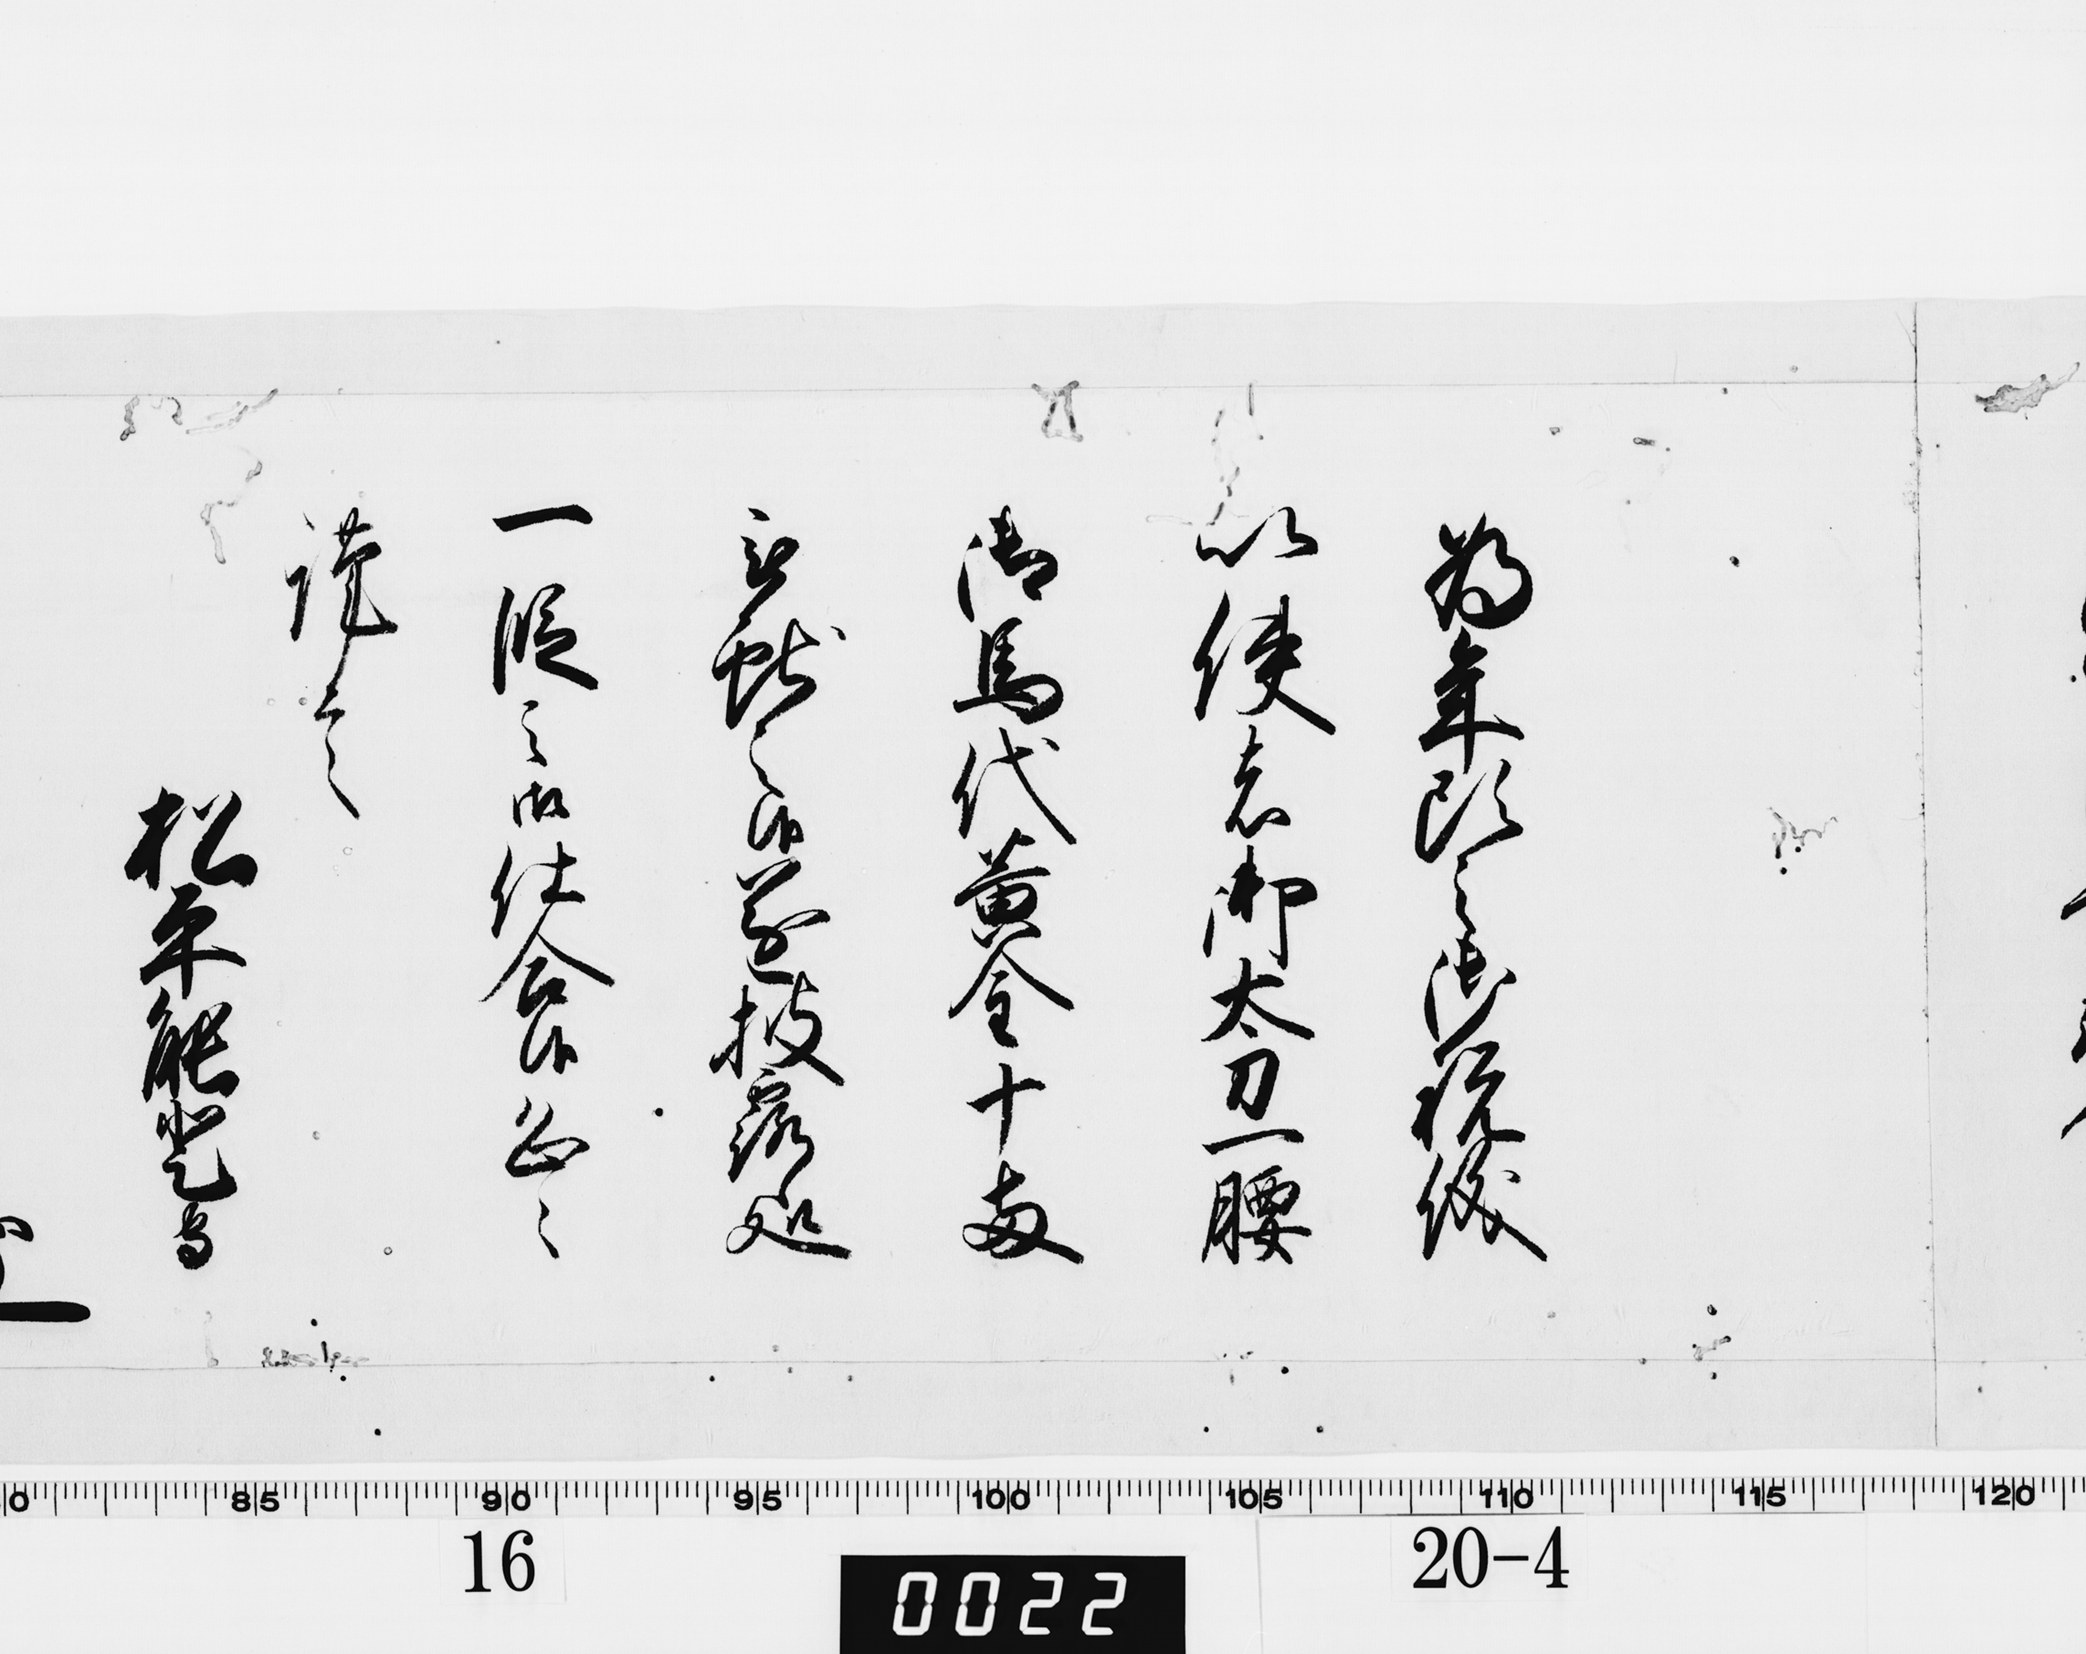 為年頭之御祝儀
以使者御太刀一腰
御馬代黄金十両
被献之候遂披露処
一段之御仕合候恐々
謹言
松平能登守
85 90 95 100 105 110 115 120
16
20-4
0022